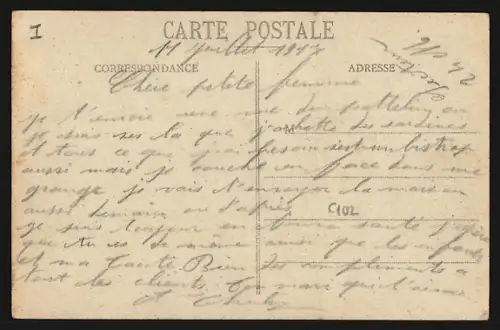 I
CARTE POSTALE
11 Juillet 1917
CORRESPONDANCE
ADRESSE
Chère petite femme
je t'envoie une vue du patelin ou
je suis ses la que j'achette des sardines
et tous ce que j'ai besoin sest un bistrot
aussi mais je couche en face dans une
grange je vais t'envoyer la maison
aussi demain ou d'après
C102
je suis toujour en bonne santé j'espère
que tu es de même ainsi que les enfants
et ma tante Bien des compliments a
tout les clients ton mari qui t'aime